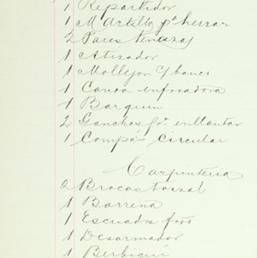 1 Repartidor
1 M Artillo pa herrar
2 Pares tenazas
1 Atizador
1 Mollejon c/ banco
1 Canoa enfriadora
1 Barquin
2 Ganchos pa enllantar
1 Compás circular
Carpinteria
2 Brocas
1 Barrena
1 Escuadra
1 Desarmador
1 Berbiqui